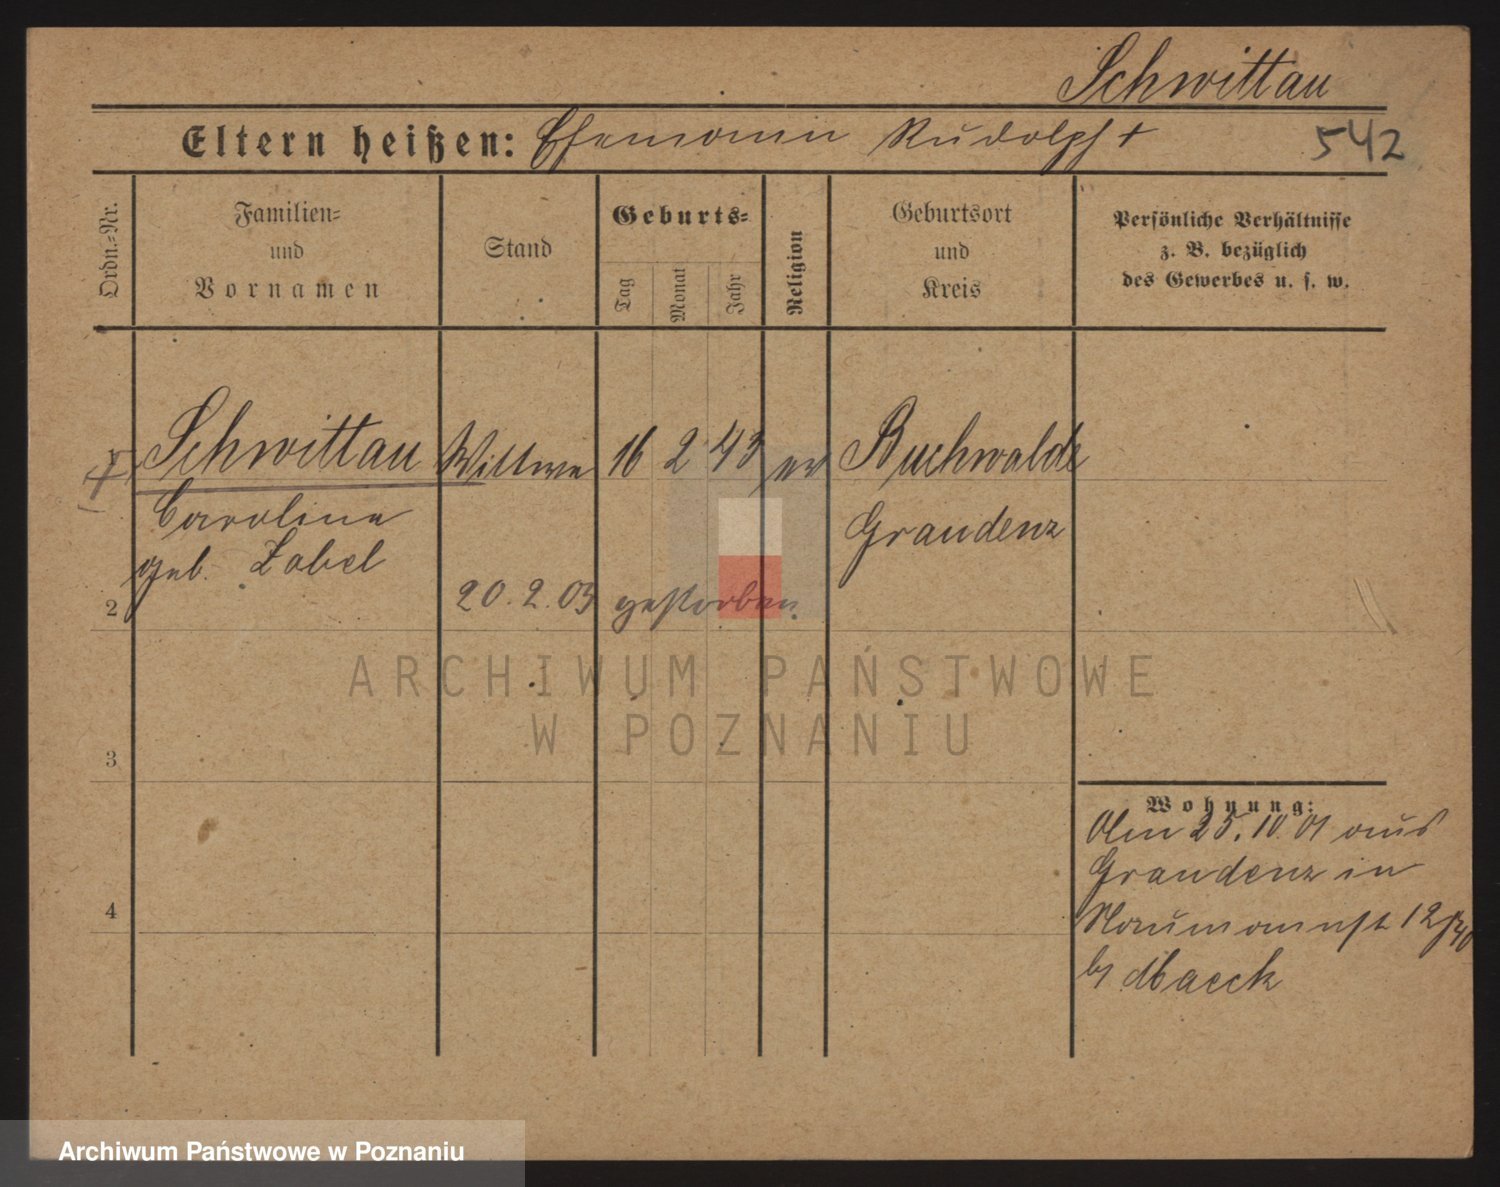 Schwittau
Eltern heißen: Ehemann Rudolph †
542
Ordn.-Nr.
Familien-
und
Vornamen
Stand
Geburts-
Tag
Monat
Jahr
Religion
Geburtsort
und
Kreis
Persönliche Verhältnisse
z. B. bezüglich
des Gewerbes u. s. w.
1 Schwittau Wittwe 16 2 43 ev Buchwalde
Caroline Graudenz
geb. Zabel
2 20.2.03 gestorben.
ARCHIWUM PAŃSTWOWE
W POZNANIU
3
Wohnung:
Am 25.10 01 aus
Graudenz in
4
Naumannst 12
by Haeck
Archiwum Państwowe w Poznaniu